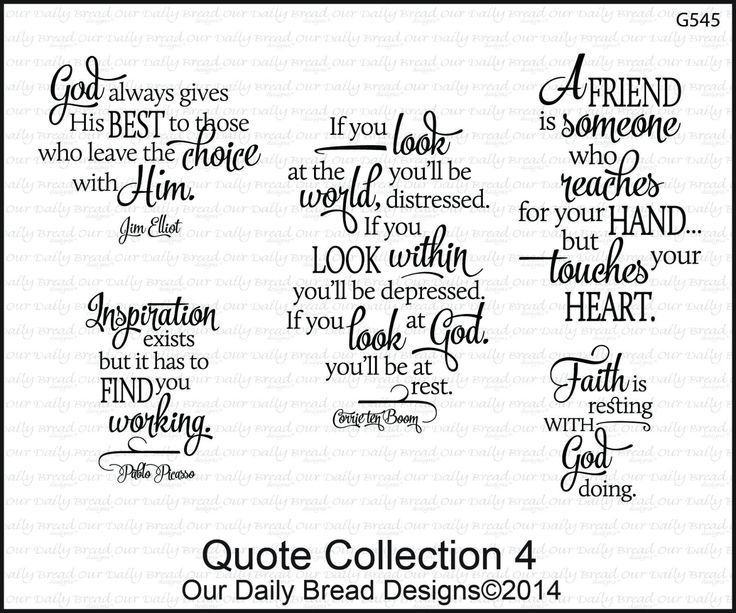 G545
God always gives
His BEST to those
who leave the choice
with Him.
Jim Elliot
Inspiration
exists
but it has to
FIND you
working.
Pablo Picasso
If you look
at the you'll be
world, distressed.
If you
LOOK within
you'll be depressed.
If you look at God.
you'll be at
rest.
Corrie ten Boom
A FRIEND
is someone
who
reaches
for your HAND...
but
touches your
HEART.
Faith is
resting
WITH
God
doing.
Quote Collection 4
Our Daily Bread Designs©2014